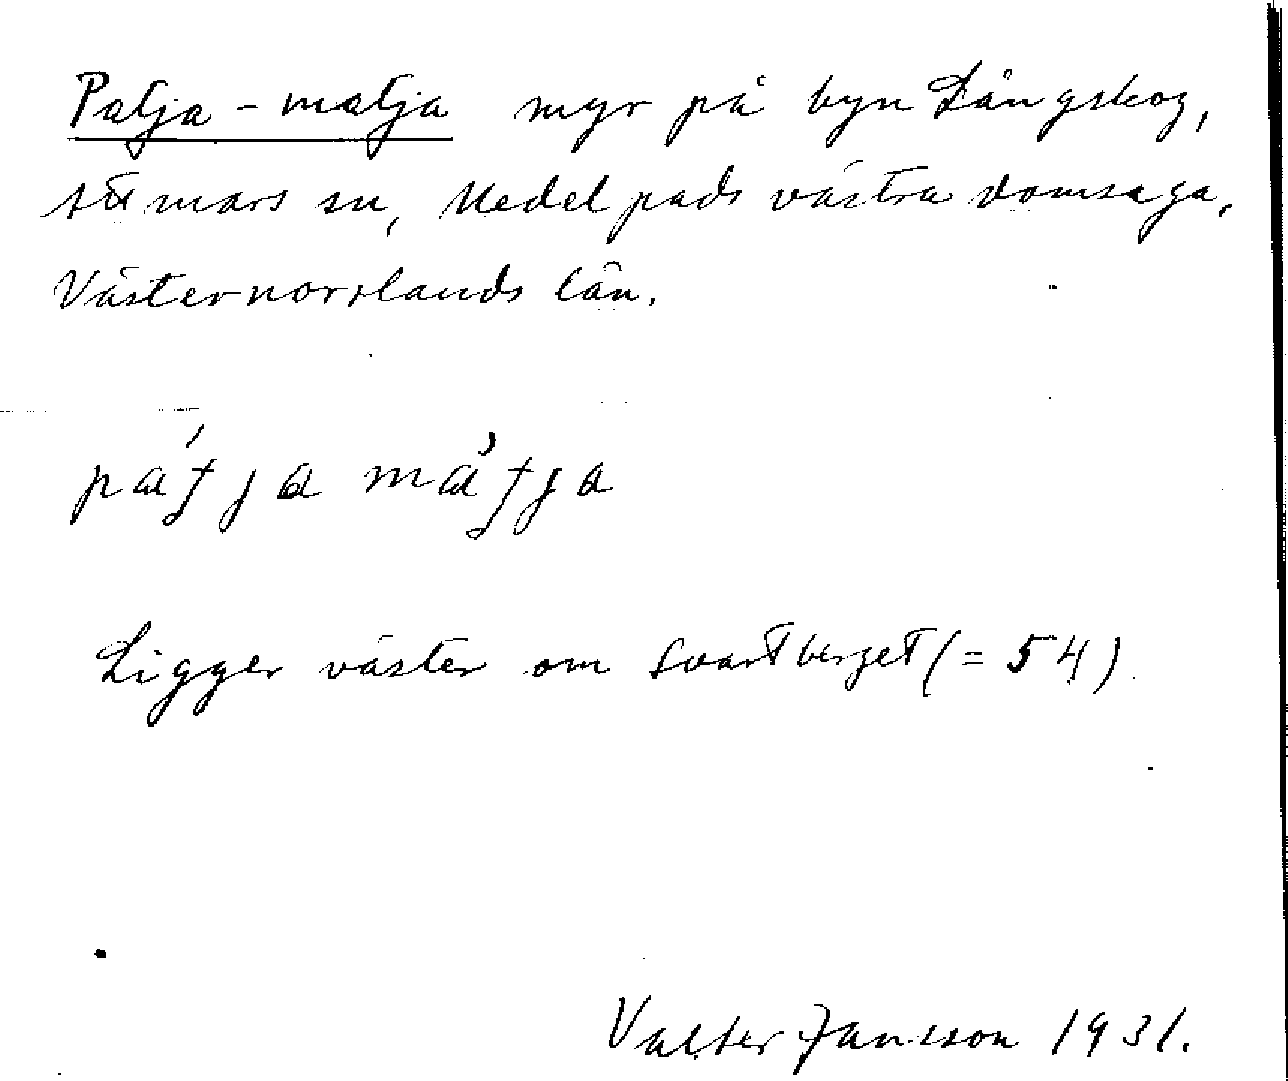 Palja - malja myr på byn Långskog,
Attmars sn, Medelpads västra domsaga,
Västernorrlands län.
Ligger väster om Svartberget (= 54)
Valter Jansson 1931.